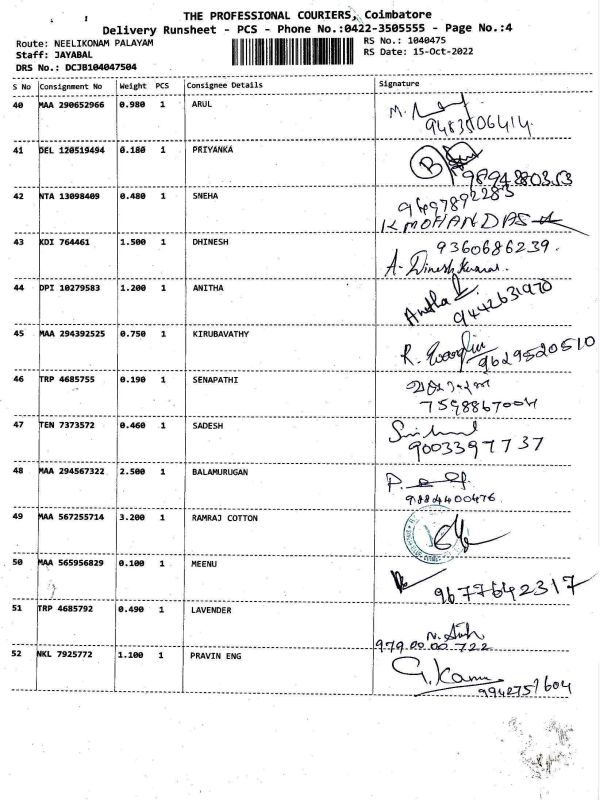 THE PROFESSIONAL COURIERS, Coimbatore
Delivery Runsheet - PCS - Phone No.:0422-3505555 - Page No.:4
Route: NEELIKONAM PALAYAM
Staff: JAYABAL
DRS No.: DCJB104047504
RS No.: 1040475
RS Date: 15-Oct-2022
S No Consignment No Weight PCS Consignee Details Signature
40 MAA 290652966 0.980 1 ARUL
9483506414
41 DEL 120519494 0.180 1 PRIYANKA
B
9894280353
42 NTA 13098409 0.480 1 SNEHA
9697892283
K MOHANDAS
43 KDI 764461 1.500 1 DHINESH
9360686239.
A. Dinesh Kumar.
44 DPI 10279583 1.200 1 ANITHA
Anitha
9442631970
45 MAA 294392525 0.750 1 KIRUBAVATHY
9629520510
46 TRP 4685755 0.190 1 SENAPATHI
7598867004
47 TEN 7373572 0.460 1 SADESH
9003397737
48 MAA 294567322 2.500 1 BALAMURUGAN
9884400476
49 MAA 567255714 3.200 1 RAMRAJ COTTON
50 MAA 565956829 0.100 1 MEENU
9677642317
51 TRP 4685792 0.490 1 LAVENDER
979 00 00 722
52 NKL 7925772 1.100 1 PRAVIN ENG
9942757604